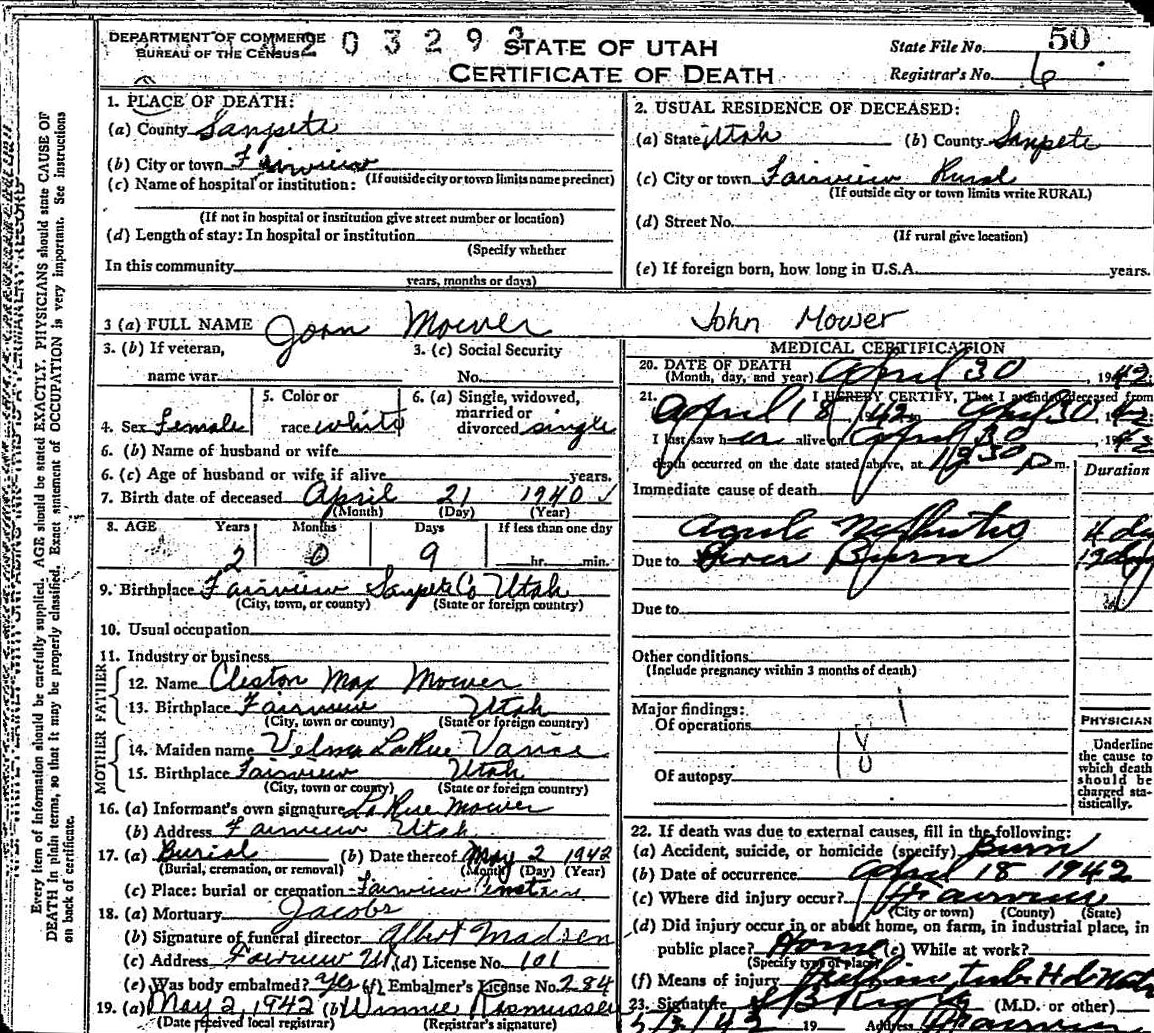 DEPARTMENT OF COMMERCE
BUREAU OF THE CENSUS
203293
STATE OF UTAH
CERTIFICATE OF DEATH
State File No. 50
Registrar's No. 6
1. PLACE OF DEATH:
(a) County Sanpete
(b) City or town Fairview
(If outside city or town limits name precinct)
(c) Name of hospital or institution:
(If not in hospital or institution give street number or location)
(d) Length of stay: In hospital or institution
(Specify whether
In this community
years, months or days)
2. USUAL RESIDENCE OF DECEASED:
(a) State Utah (b) County Sanpete
(c) City or town Fairview Rural
(If outside city or town limits write RURAL)
(d) Street No.
(If rural give location)
(e) If foreign born, how long in U.S.A. years.
3 (a) FULL NAME Joan Mower John Mower
3. (b) If veteran, name war
3. (c) Social Security No.
4. Sex Female
5. Color or race white
6. (a) Single, widowed, married or divorced single
6. (b) Name of husband or wife
6. (c) Age of husband or wife if alive years.
7. Birth date of deceased April 21 1940
(Month) (Day) (Year)
8. AGE Years Months Days If less than one day
2 0 9 hr. min.
9. Birthplace Fairview Sanpete Co Utah
(City, town, or county) (State or foreign country)
10. Usual occupation
11. Industry or business
FATHER
12. Name Cleston Max Mower
13. Birthplace Fairview Utah
(City, town or county) (State or foreign country)
MOTHER
14. Maiden name Velma LaRue Vance
15. Birthplace Fairview Utah
(City, town or county) (State or foreign country)
16. (a) Informant's own signature LaRue Mower
(b) Address Fairview Utah
17. (a) Burial (b) Date thereof May 2 1942
(Burial, cremation, or removal) (Month) (Day) (Year)
(c) Place: burial or cremation Fairview
18. (a) Mortuary Jacobs
(b) Signature of funeral director Albert Madsen
(c) Address Fairview Ut (d) License No. 101
(e) Was body embalmed? Yes (f) Embalmer's License No. 284
19. (a) May 2, 1942 (b) Winnie Rasmussen
(Date received local registrar) (Registrar's signature)
MEDICAL CERTIFICATION
20. DATE OF DEATH
(Month, day, and year) April 30, 1942
21. I HEREBY CERTIFY, That I attended deceased from
April 18, 1942 to April 30, 42
I last saw her alive on April 30 1942
death occurred on the date stated above, at 30 p m.
Immediate cause of death Duration
Acute Nephritis 4 day
Due to Burn 12 day
Due to
Other conditions
(Include pregnancy within 3 months of death)
Major findings:
Of operations
Of autopsy
18
PHYSICIAN
Underline
the cause to
which death
should be
charged sta-
tistically.
22. If death was due to external causes, fill in the following:
(a) Accident, suicide, or homicide (specify) Burn
(b) Date of occurrence April 18 1942
(c) Where did injury occur? Fairview
(City or town) (County) (State)
(d) Did injury occur in or about home, on farm, in industrial place, in
public place? Home (e) While at work?
(Specify type of place)
(f) Means of injury tub H
23. Signature (M.D. or other)
5/3/42 19 Address Fairview
Every item of information should be carefully supplied. AGE should be stated EXACTLY. PHYSICIANS should state CAUSE OF
DEATH in plain terms, so that it may be properly classified. Exact statement of OCCUPATION is very important. See instructions
on back of certificate.